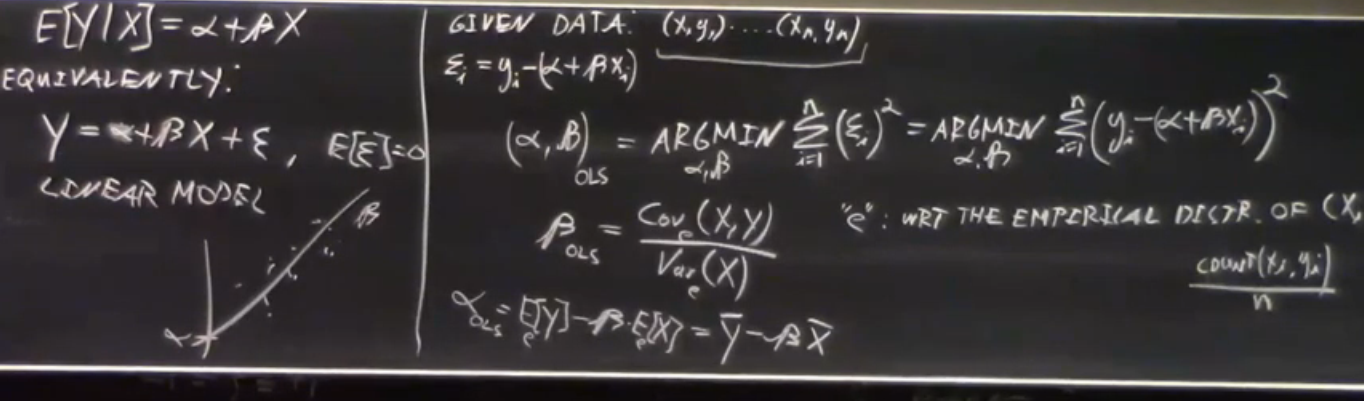 E[Y|X]=α+βX
EQUIVALENTLY:
Y=α+βX+ε, E[ε]=0
LINEAR MODEL
β
α
GIVEN DATA: (x₁y₁)....(xₙ,yₙ)
εᵢ=yᵢ-(α+βxᵢ)
(α,β)_OLS = ARGMIN_α,β Σ_{i=1}^n (εᵢ)² = ARGMIN_α,β Σ_{i=1}^n (yᵢ-(α+βxᵢ))²
β_OLS = Cov_e(X,Y) / Var_e(X) "e": WRT THE EMPIRICAL DISTR. OF (X,
count(xᵢ,yᵢ) / n
α_OLS = E_e[Y]-β·E_e[X] = Ȳ-βX̄